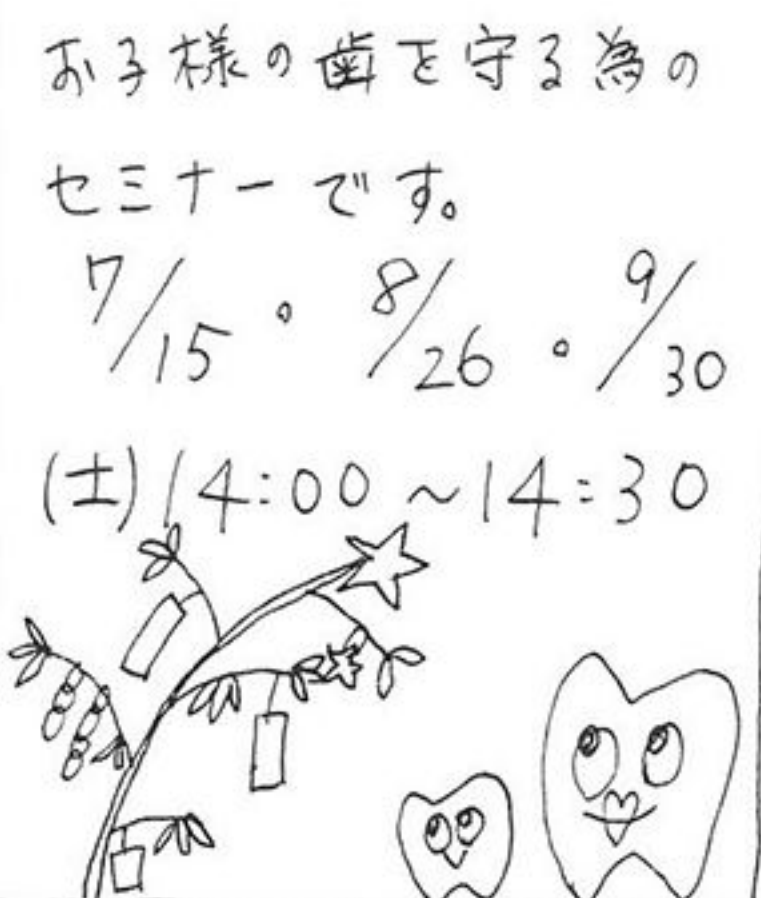 お子様の歯を守る為の
セミナーです。
7/15・8/26・9/30
(土)14:00~14:30